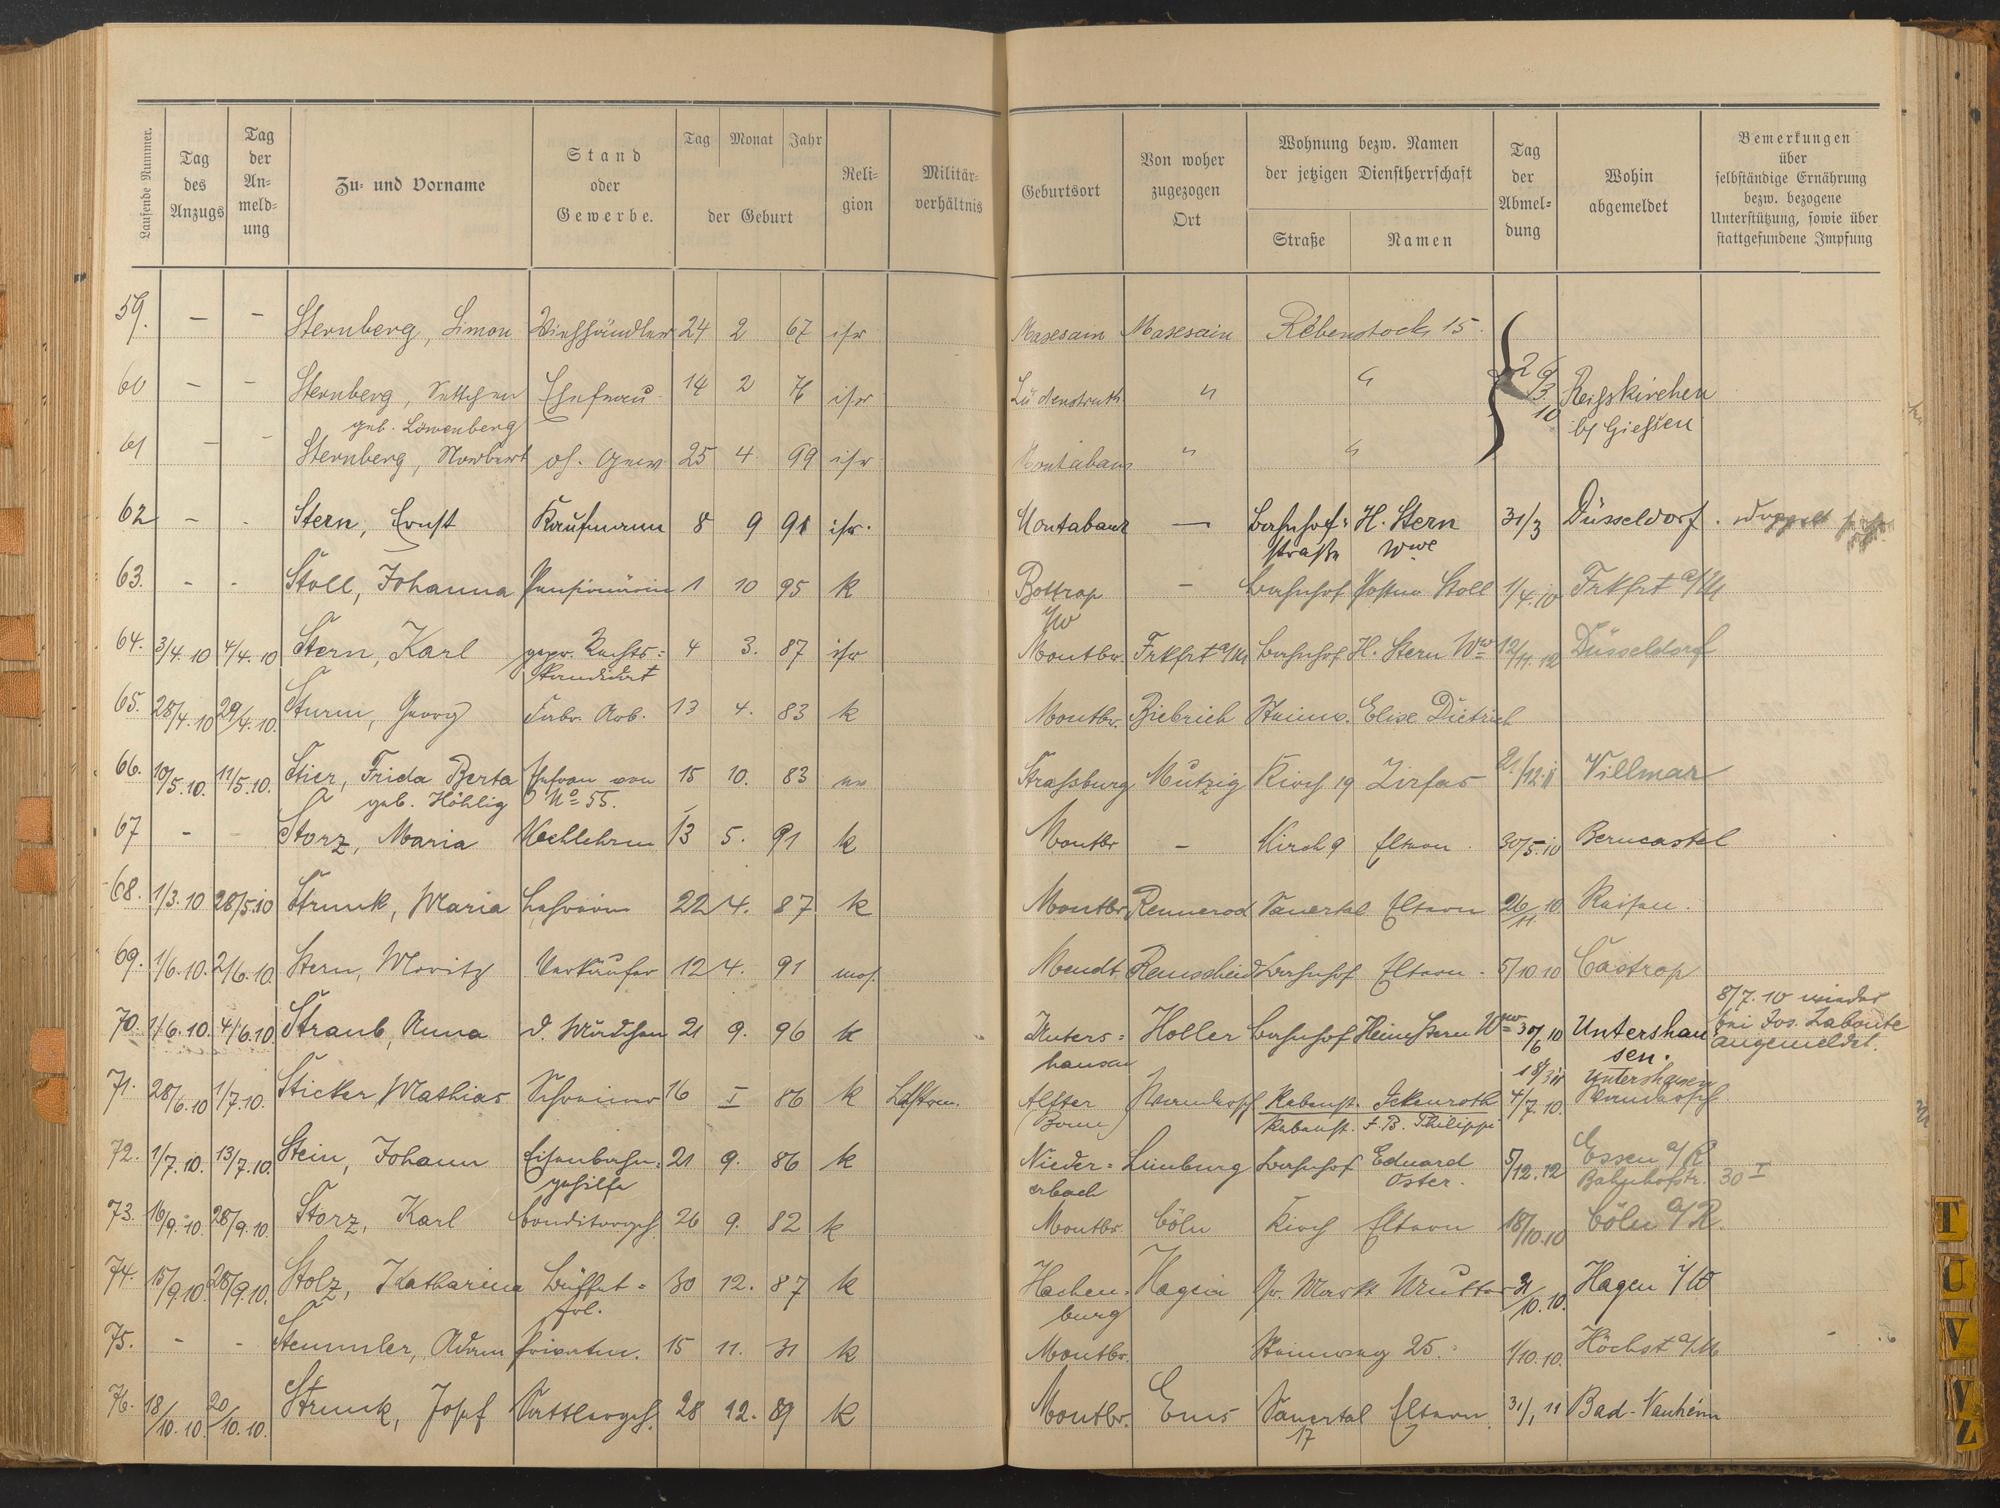 Laufende Nummer.
Tag des Anzugs
Tag der An= meld= ung
Zu= und Vorname
Stand oder Gewerbe.
Tag Monat Jahr
der Geburt
Reli= gion
Militär= verhältnis
Geburtsort
Von woher zugezogen Ort
Wohnung bezw. Namen der jetzigen Dienstherrschaft
Straße Namen
Tag der Abmel= dung
Wohin abgemeldet
Bemerkungen über selbständige Ernährung bezw. bezogene Unterstützung, sowie über stattgefundene Impfung
59. — — Sternberg, Simon Viehhändler 24 2 67 isr Maxsain Maxsain Rebenstock 15.
60 — — Sternberg, Settchen Ehefrau 14 2 76 isr " " Reiskirchen
geb. Löwenberg b/ Giessen
61 — — Sternberg, Norbert oh. Gew 25 4. 99 isr Montabaur " "
62 - - Stern, Ernst Kaufmann 8 9 91 isr. Montabaur — Bahnhof= H. Stern 31/3 Düsseldorf.
straße Wwe
63. - - Stoll, Johanna Pensionärin 1 10 95 k Bottrop - Bahnhof Stoll 1/4.10 Frkfrt a/M
i/W
64. 3/4.10 4/4.10 Stern, Karl Rechts= 4 3. 87 isr Montbr. Frkfrt a/M Bahnhof H. Stern Ww 12/11.12 Düsseldorf
kandidat
65. 28/4.10 29/4.10. Sturm, Georg Fabr. Arb. 13 4. 83 k Montbr. Biebrich Steinw. Elise Dietrich
66. 10/5.10. 11/5.10. Stier, Frida Berta Ehefrau von 15 10. 83 ev Strassburg Mutzig Kirch 19 Zirfas 21/12.11 Villmar
geb. Höhlig No 55.
67 - - Storz, Maria 13 5. 91 k Montbr - Kirch 9 Eltern 30/5.10 Berncastel
68. 1/3.10 28/5.10 Strunk, Maria Lehrerin 22 4. 87 k Montbr Rennerod Sauertal Eltern 26/11 10
69. 1/6.10. 2/6.10. Stern, Moritz Verkäufer 12 4. 91 mos. Mendt Remscheid Bahnhof Eltern. 5/10 10 Castrop
8/7.10 wieder
70. 1/6.10. 4/6.10 Straub, Anna d. Mädchen 21 9. 96 k Unters= Holler Bahnhof Heim Stern Wwe 30/6 10 Untershau= bei Jos. Labonte
hausen sen. angemeldet.
18/3 11 Untershausen
71. 28/6.10 1/7.10. Sticker, Mathias Schreiner 16 I 86 k Alfter Rebenst. Ickenroth 4/7.10.
(Bonn) Rebenst. J. B. Philippi
72. 1/7.10. 13/7.10. Stein, Johann Eisenbahn= 21 9. 86 k Nieder= Limburg Bahnhof Eduard 5/12.12 Essen a/R
gehilfe erbach Oster. Bahnhofstr. 30 I
73. 16/9.10 28/9.10. Storz, Karl Conditorgeh. 26 9. 82 k Montbr Cöln Kirch Eltern 18/10.10 Cöln a/R.
74. 15/9.10. 28/9.10. Stolz, Katharina Büffet= 30 12. 87 k Hachen= Hagen Gr. Markt Mutter Hagen i/W
frl. burg
75. - - Stemmler, Adam Privatm. 15 11. 31 k Montbr. Steinweg 25. 1/10.10. Höchst a/M
76. 18/10.10. 20/10.10. Strunk, Josef Sattlergeh. 28 12. 89 k Montbr. Ems Sauertal Eltern. 31/1 11 Bad-Nauheim
17
T
U
V
VZ